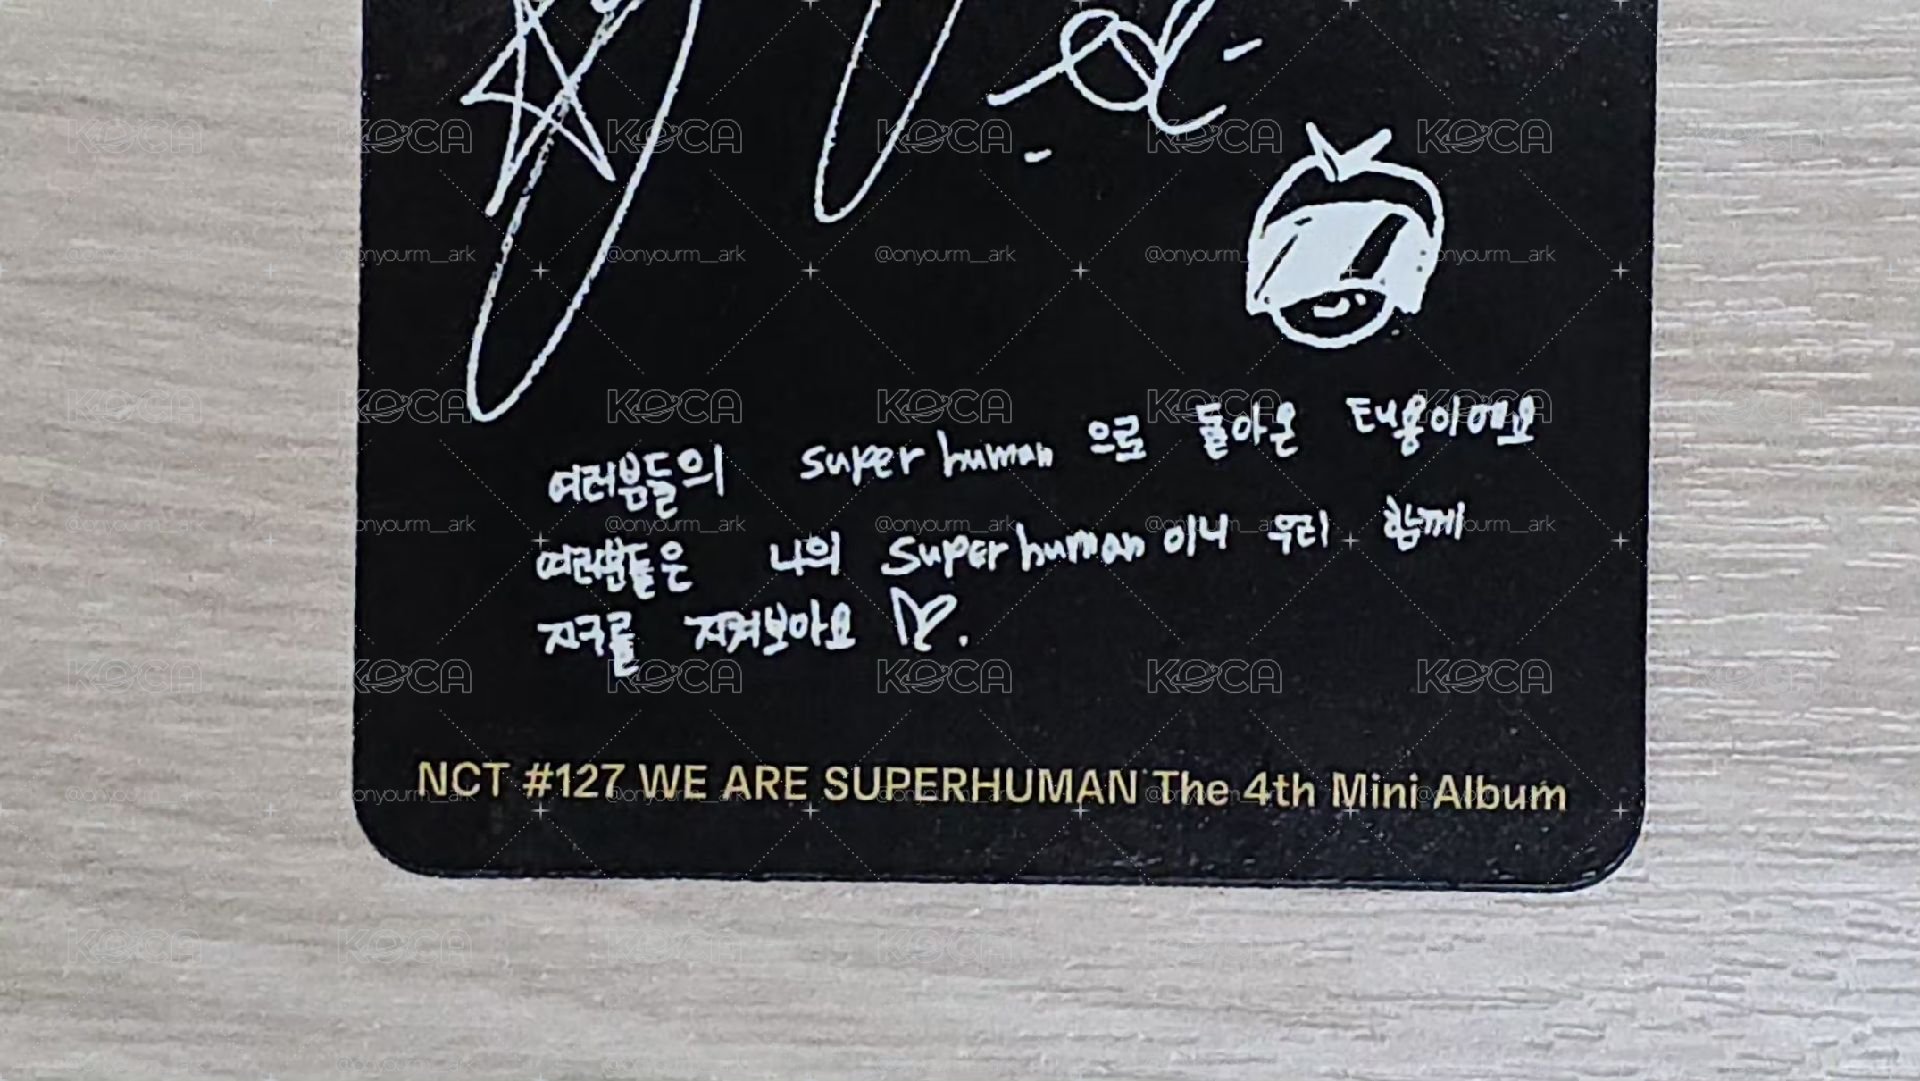 여러분들의 super human 으로 돌아온 태용이에요
여러분들은 나의 super human 이니 우리 함께
지구를 지켜보아요 ♡.
NCT #127 WE ARE SUPERHUMAN The 4th Mini Album
KOCA
@onyourm__ark